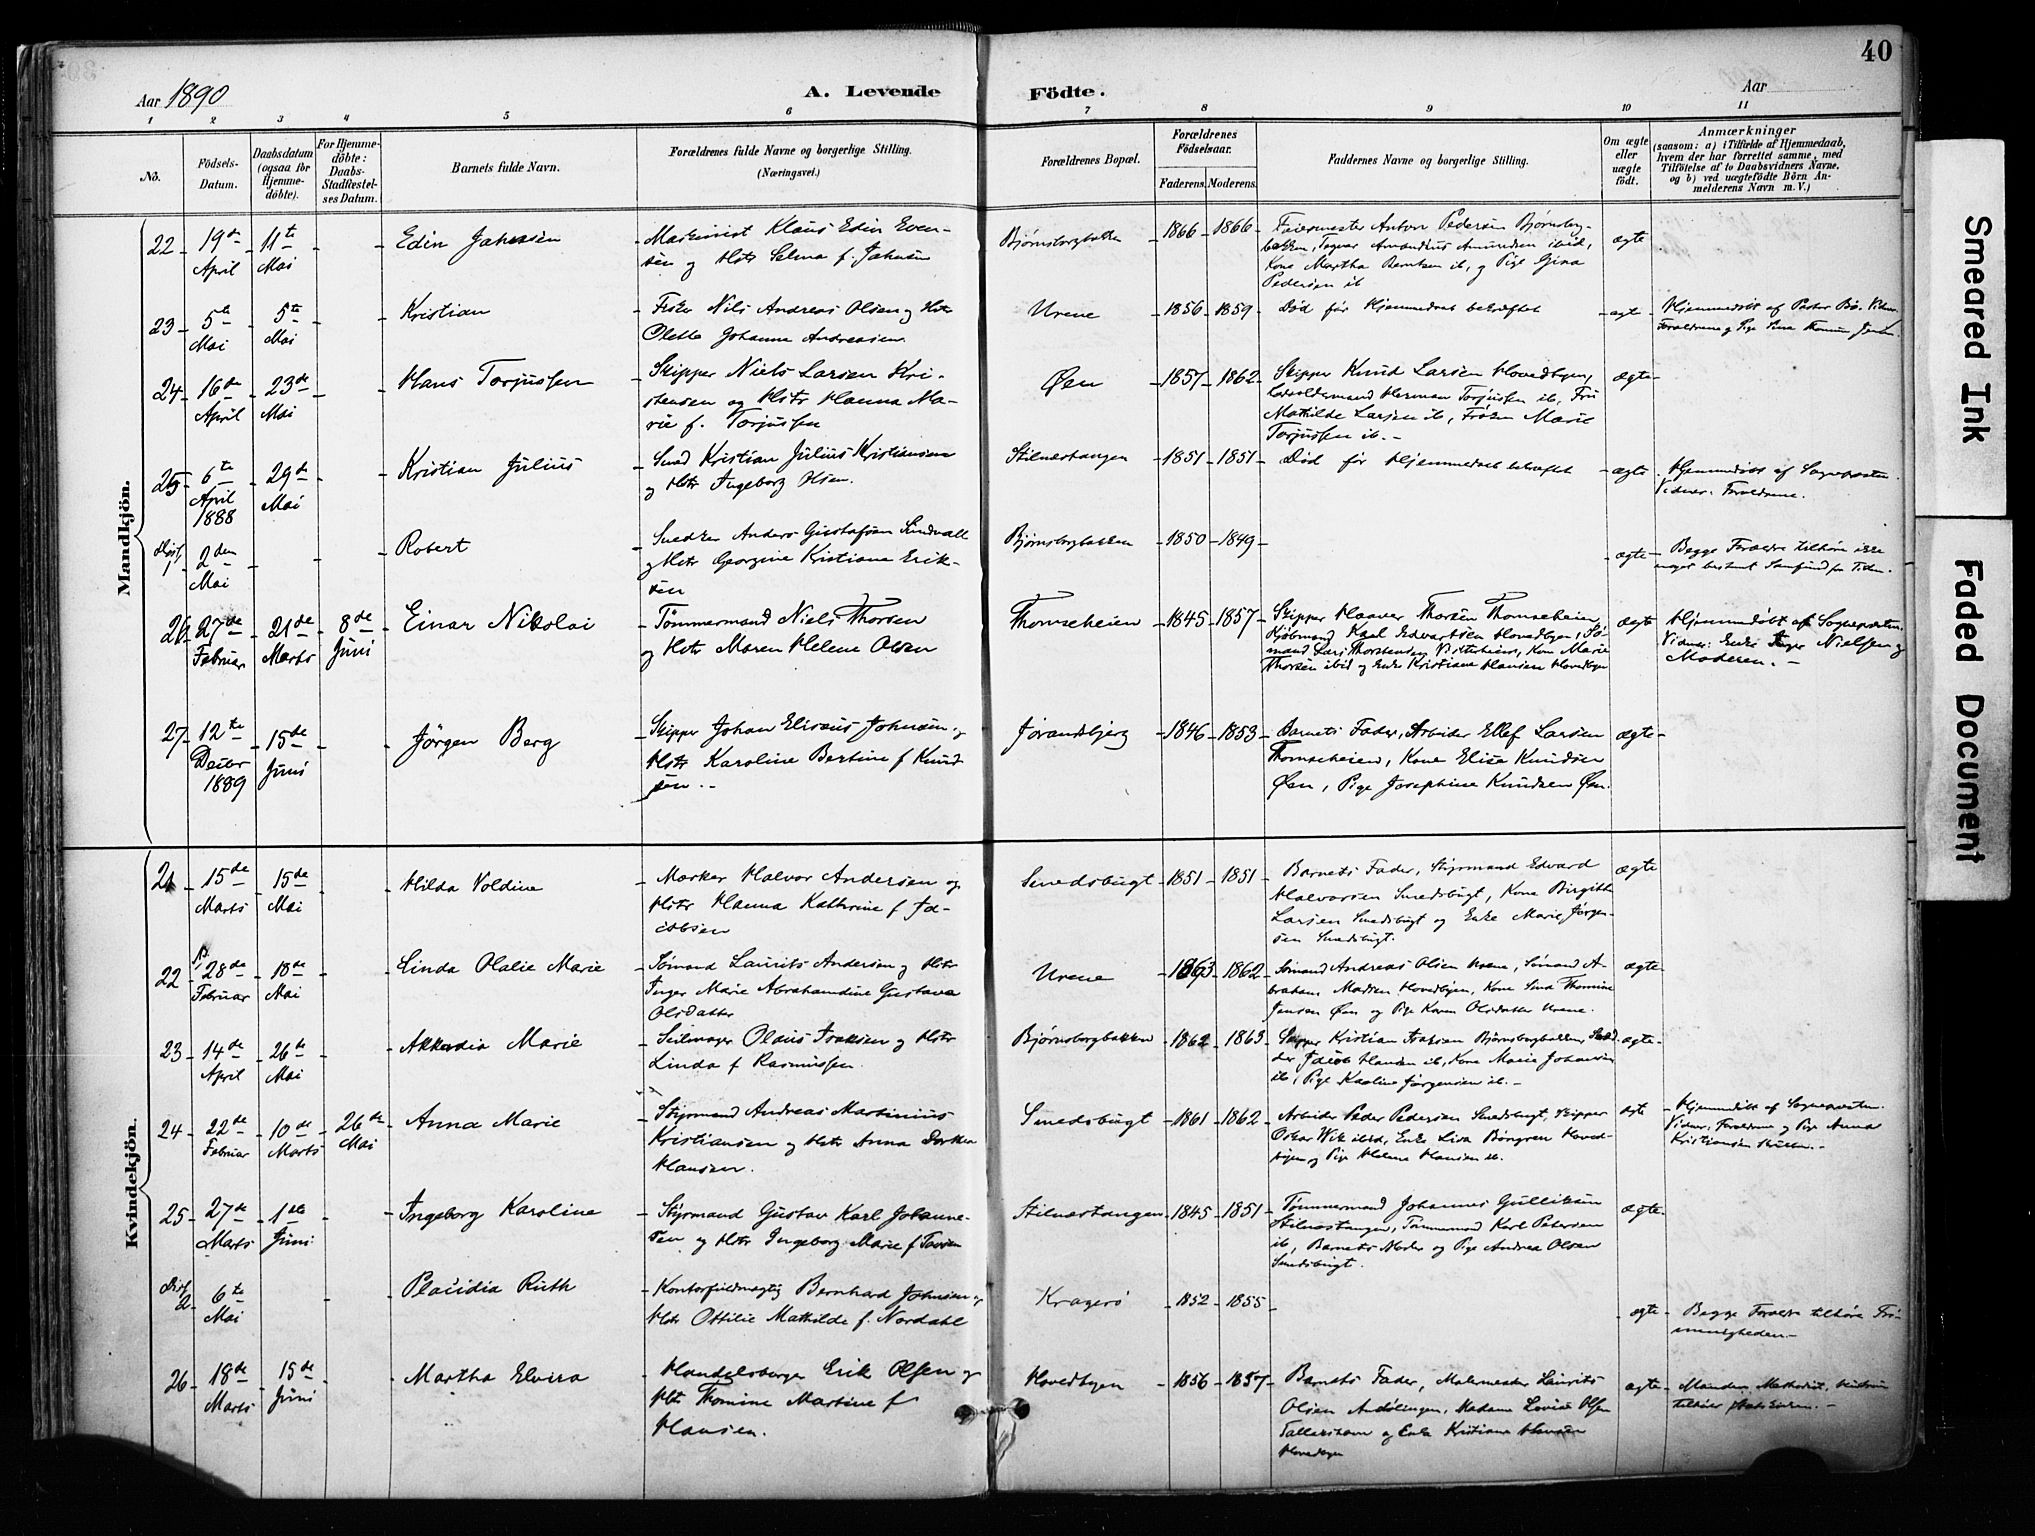 40
Aar 1890
A. Levende Födte.
Aar
1 2 3 4 5 6 7 8 9 10 11
No.
Födsels-Datum.
Daabsdatum (ogsaa for Hjemmedöbte).
For Hjemmedöbte: Daabs-Stadfæstelses Datum.
Barnets fulde Navn.
Forældrenes fulde Navne og borgerlige Stilling. (Næringsvei.)
Forældrenes Bopæl.
Forældrenes Födselsaar.
Faderens. Moderens.
Faddernes Navne og borgerlige Stilling.
Om ægte eller uægte födt.
Anmærkninger
(saasom: a) i Tilfælde af Hjemmedaab, hvem der har forrettet samme, med Tilföielse af to Daabsvidners Navne, og b) ved uægtefödte Börn Anmelderens Navn m. V.)
Mandkjön.
22 19de April 11te Mai Edin Johnsen
Maskinist Klaus Edin Evensen og Hstr Selma f. Johnsen
Bjørnsborgbakken 1866 1866
Feiermester Anton Pedersen Bjørnsborgbakken, Amandus Amundsen ibid, Kone Martha Berntsen ib, og Pige Gina Pedersen ib
ægte
23 5te Mai 5te Mai Kristian
Fisker Nils Andreas Olsen og Hstr Olette Johanne Andreasen
Urene 1856 1859
Død før Hjemmedaab bekræftet
ægte
Hjemmedöbt af Pastor Bö. Vidner Forældrene og Pige
24 16de April 23de Mai Hans Torjussen
Skipper Niels Larsen Kristensen og Hstr Hanna Marie f. Torjussen
Øen 1857 1862
Skipper Knud Larsen Hovedbyen, Herman Torjussen ib, Fru Mathilde Larsen ib, Frøken Marie Torjussen ib.-
ægte
25 6te April 1888 29de Mai Kristian Julius
Smed Kristian Julius Kristiansen og Hstr Ingeborg Olsen.
Stilnæstangen 1851 1851
Død før Hjemmedaab bekræftet
ægte
Hjemmedöbt af Sognepræsten. Vidner: Forældrene.
1 2den Mai Robert
Snedker Anders Gustafsen Sundvall og Hstr Georgine Kristiane Eriksen
Bjørnsborgbakken 1850 1849
ægte
Begge Forældre tilhøre ikke noget bestemt Samfund for Tiden.
26 27de Februar 21de Marts 8de Juni Einar Nikolai
Tømmermand Niels Thorsen og Hstr Maren Helene Olsen
Thomseheien 1845 1857
Skipper Haaver Thorsen Thomseheien, Kjøbmand Karl Edvartsen Hovedbyen, Sømand Lars Thorstensen Vesterheien, Kone Marie Thorsen ibid og Enke Kristiane Hansen Hovedbyen
ægte
Hjemmedöbt af Sognepræsten. Vidner: Enke Nielsen og Moderen.-
27 12te Decbr 1889 15de Juni Jörgen Berg
Skipper Johan Eliseus Johnsen og Hstr Karoline Bertine f Knudsen.-
Jorandsbjerg 1846 1853
Barnets Fader, Arbeider Ellef Larsen Thomseheien, Kone Elise Knudsen Øen, Pige Josephine Knudsen Øen.
ægte
Kvindekjön.
21 15de Marts 15de Mai Hilda Voldine
Mærker Halvor Andersen og Hstr Hanna Kathrine f Jacobsen
Smedsbugt 1851 1851
Barnets Fader, Styrmand Edvard Halvorsen Smedsbugt, Kone Birgitte Larsen Smedsbugt og Enke Marie Jörgensen Smedsbugt.
ægte
22 28de Februar 18de Mai Linda Olalie Marie
Sømand Laurits Andersen og Hstr Inger Marie Abrahamdine Gustava Olsdatter
Urene 1863 1862
Sømand Andreas Olsen Urene, Sømand Abraham Madsen Hovedbyen, Kone Sina Thomine Jensen Øen og Pige Karen Olsdatter Urene.
ægte
23 14de April 26de Mai Akkadia Marie
Seilmager Olaus Isaksen og Hstr Linda f Rasmussen.
Bjørnsborgbakken 1862 1863
Skipper Kristian Isaksen Bjørnsborgbakken, Jacob Hansen ib, Kone Marie Johansen ib, Pige Karoline Jørgensen ib.-
ægte
24 22de Februar 10de Marts 26de Mai Anna Marie
Styrmand Andreas Martinius Kristiansen og Hstr Anna Dorthea Hansen.
Smedsbugt 1861 1862
Arbeider Peder Pedersen Smedsbugt, Skipper Oskar Wik ibid, Enke Lisa Hovedbyen og Pige Helene Hansen ib.
ægte
Hjemmedöbt af Sognepræsten. Vidner: Forældrene og Pige Anna Kristiansen
25 27de Marts 1ste Juni Ingeborg Karoline
Styrmand Gustav Karl Johannesen og Hstr Ingeborg Marie f
Stilnæstangen 1845 1851
Tømmermand Johannes Gulliksen Stilnæstangen, Tømmermand Karl Petersen ib, Barnets Moder og Pige Andrea Olsen Smedsbugt.
ægte
2 6te Mai Placidia Ruth
Kontorfuldmægtig Bernhard Johnsen og Hstr Ottilie Mathilde f. Nordahl
Kragerö 1852 1855
ægte
Begge Forældre tilhøre Frimenigheden.-
26 18de Marts 15de Juni Martha Elvira
Handelsborger Erik Olsen og Hstr Thomine Martine f Hansen.
Hovedbyen 1856 1857
Barnets Fader, Malermester Laurits Olsen, Madame Lovise Olsen og Enke Kristiane Hansen Hovedbyen
ægte
Manden Methodist, Hustruen tilhører Statskirken.-
Smeared Ink
Faded Document